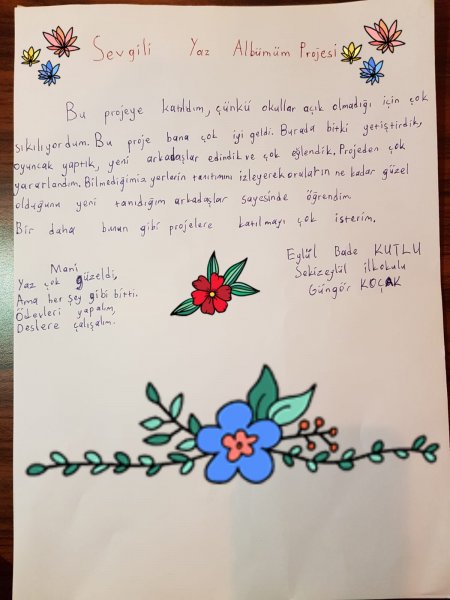 Sevgili Yaz Albümüm Projesi
Bu projeye katıldım, çünkü okullar açık olmadığı için çok
sıkılıyordum. Bu proje bana çok iyi geldi. Burada bitki yetiştirdik,
oyuncak yaptık, yeni arkadaşlar edindik ve çok eğlendik. Projeden çok
yararlandım. Bilmediğimiz yerlerin tanıtımını izleyerek oraların ne kadar güzel
olduğunu yeni tanıdığım arkadaşlar sayesinde öğrendim.
Bir daha bunun gibi projelere katılmayı çok isterim.
Mani
Yaz çok güzeldi,
Ama her şey gibi bitti.
Ödevleri yapalım,
Deslere çalışalım.
Eylül Bade KUTLU
Sekizeylül ilkokulu
Güngör KOÇAK